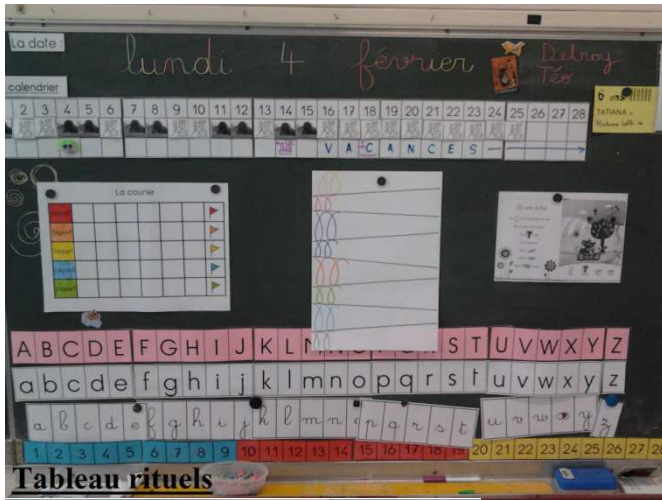 La date :
lundi 4 février
Delroy
Téo
calendrier
2 3 4 5 6 7 8 9 10 11 12 13 14 15 16 17 18 19 20 21 22 23 24 25 26 27 28
V A C A N C E S
6 ans
TATIANA
La course
Départ
Départ
Départ
Départ
Départ
A B C D E F G H I J K L M S T U V W X Y Z
a b c d e f g h i j k l m n o p q r s t u v w x y z
a b c d e f g h i j k l m n o p q r s t u v w x y z
1 2 3 4 5 6 7 8 9 10 11 12 13 14 15 16 17 18 19 20 21 22 23 24 25 26 27 28
Tableau rituels